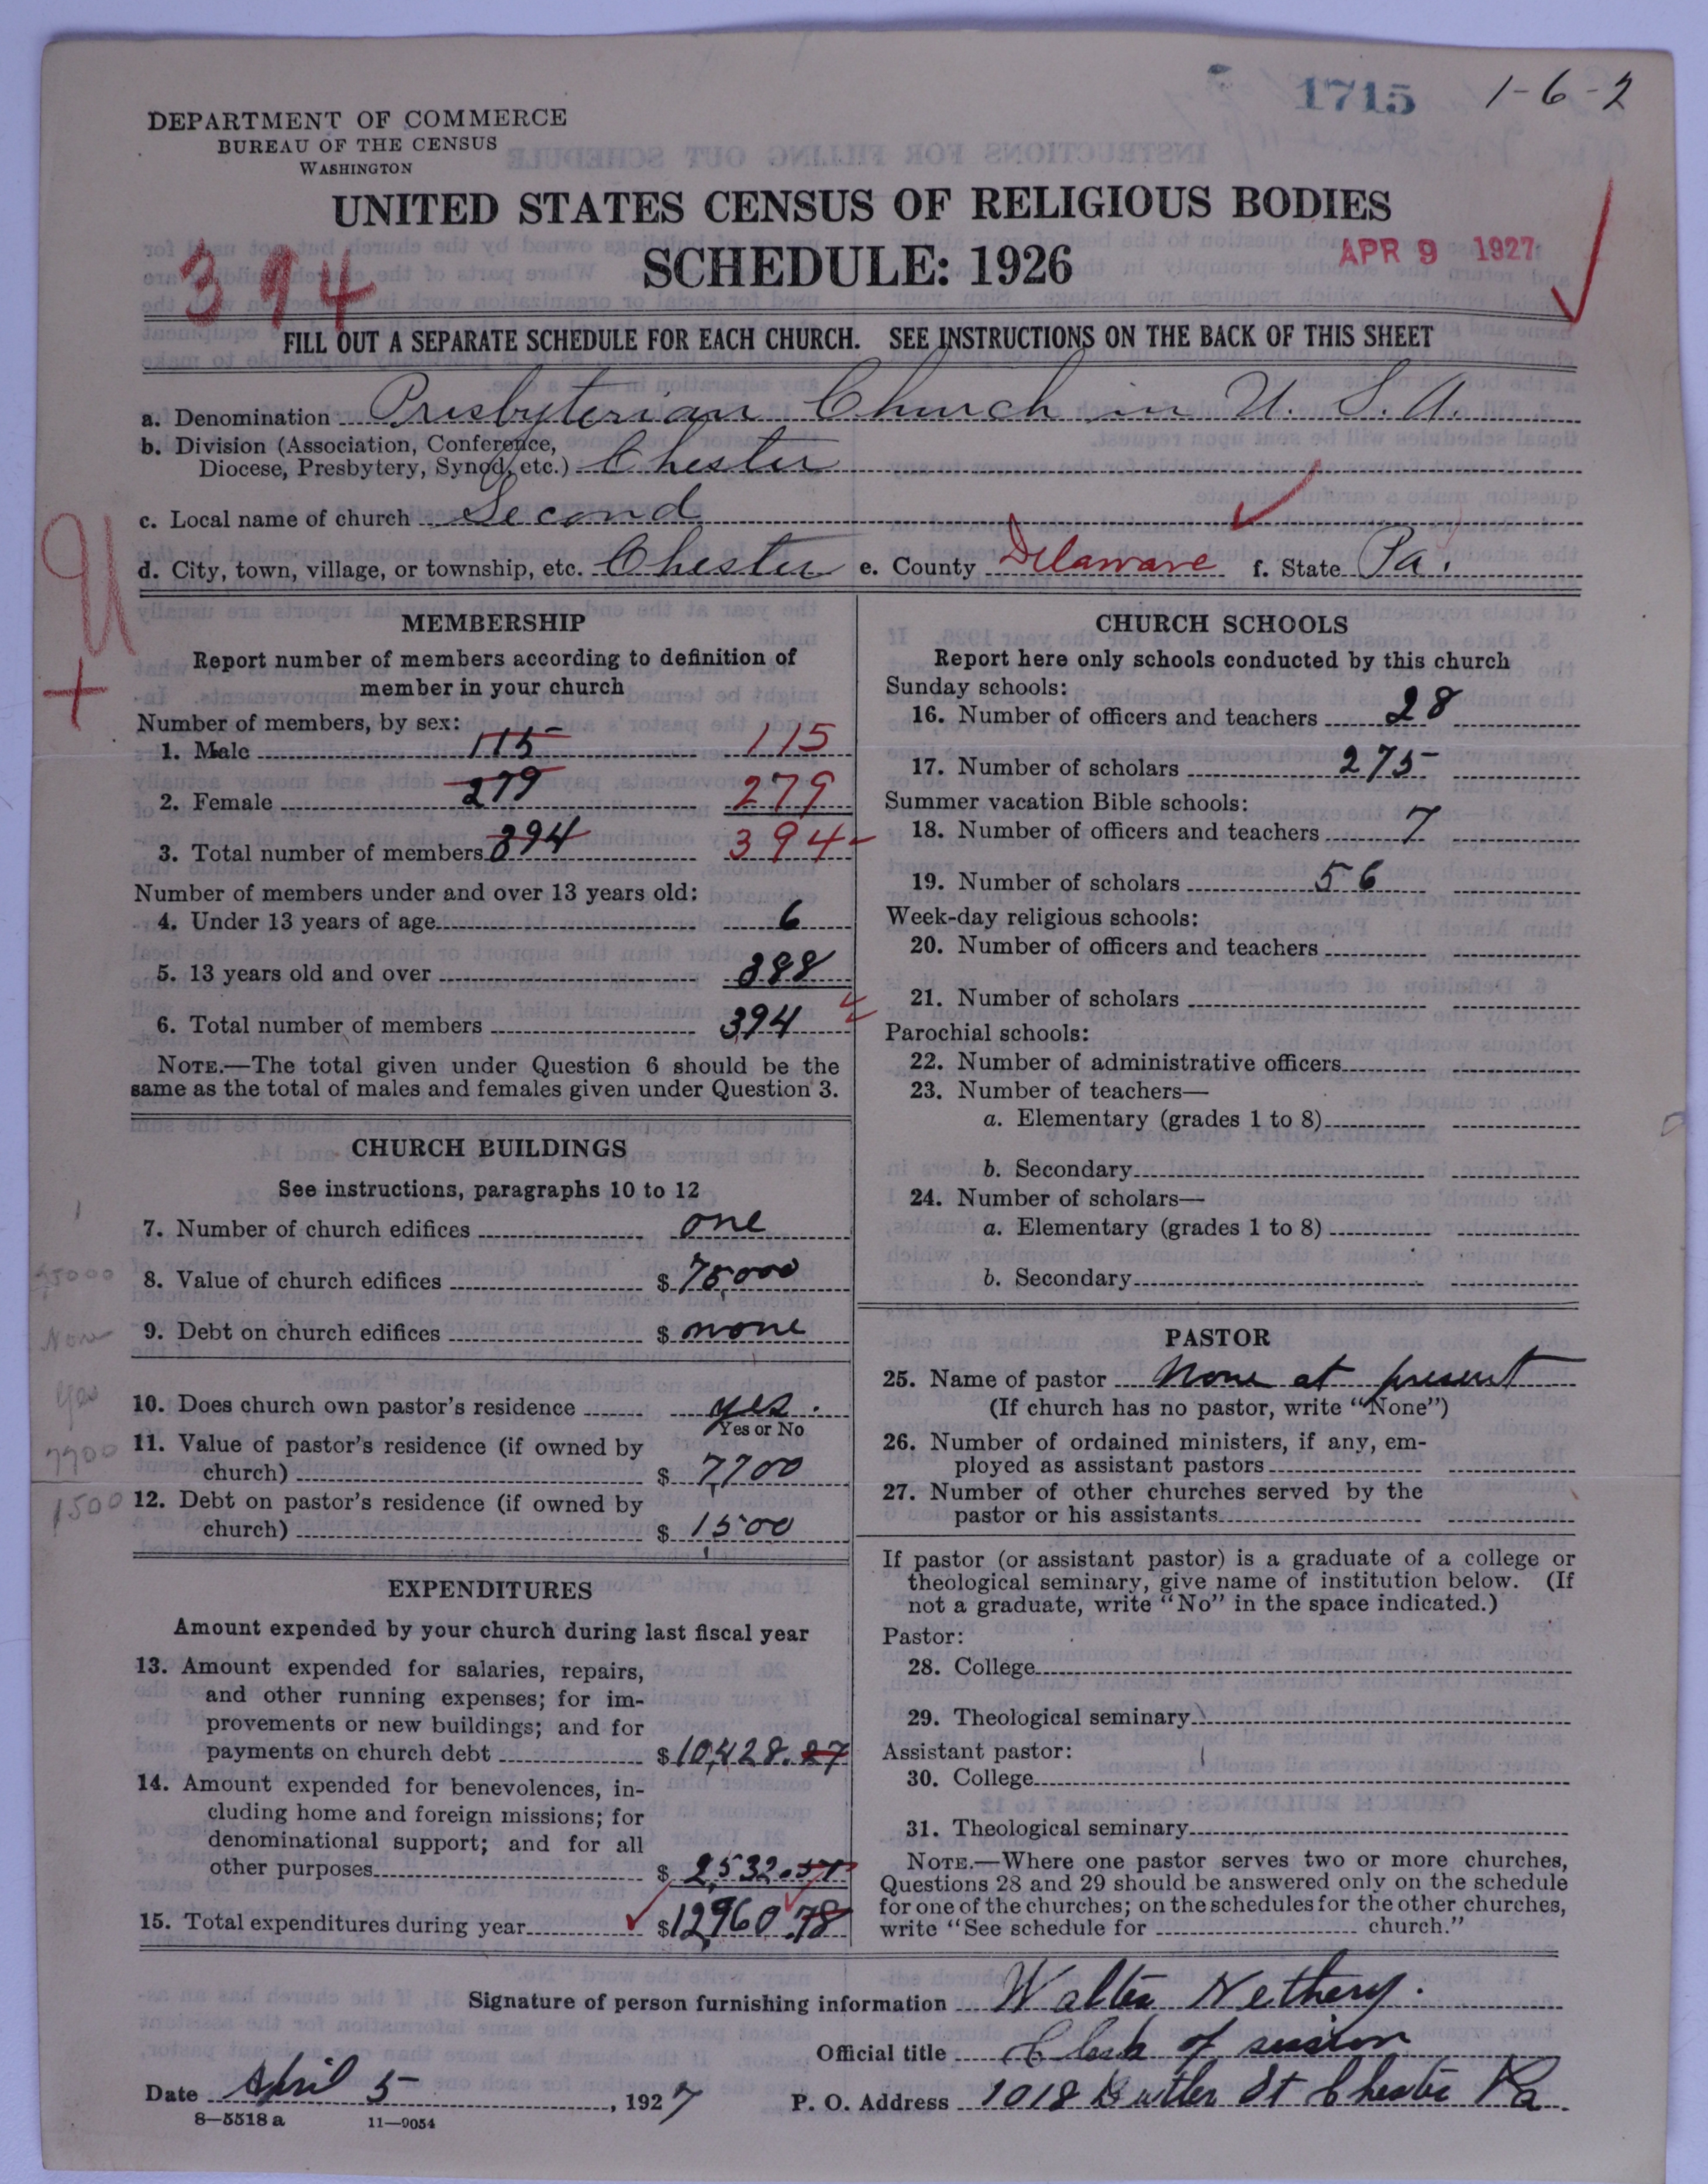 1715 1-6-2
DEPARTMENT OF COMMERCE
BUREAU OF THE CENSUS
WASHINGTON
UNITED STATES CENSUS OF RELIGIOUS BODIES
SCHEDULE: 1926
APR 9 1927
394
FILL OUT A SEPARATE SCHEDULE FOR EACH CHURCH. SEE INSTRUCTIONS ON THE BACK OF THIS SHEET
a. Denomination Presbyterian Church in U. S. A.
b. Division (Association, Conference,
Diocese, Presbytery, Synod, etc.) Chester
c. Local name of church Second
d. City, town, village, or township, etc. Chester e. County Delaware f. State Pa.
MEMBERSHIP
Report number of members according to definition of
member in your church
Number of members, by sex:
1. Male 115 115
2. Female 279 279
3. Total number of members 394 394
Number of members under and over 13 years old:
4. Under 13 years of age 6
5. 13 years old and over 388
6. Total number of members 394
NOTE.—The total given under Question 6 should be the
same as the total of males and females given under Question 3.
CHURCH BUILDINGS
See instructions, paragraphs 10 to 12
7. Number of church edifices one
8. Value of church edifices $ 75,000
9. Debt on church edifices $ none
None
10. Does church own pastor's residence yes.
Yes or No
yes
11. Value of pastor's residence (if owned by
church) $ 7700
7700
12. Debt on pastor's residence (if owned by
church) $ 1500
1500
EXPENDITURES
Amount expended by your church during last fiscal year
13. Amount expended for salaries, repairs,
and other running expenses; for im-
provements or new buildings; and for
payments on church debt $ 10,428.27
14. Amount expended for benevolences, in-
cluding home and foreign missions; for
denominational support; and for all
other purposes $ 2,532.51
15. Total expenditures during year $ 12,960.78
CHURCH SCHOOLS
Report here only schools conducted by this church
Sunday schools:
16. Number of officers and teachers 28
17. Number of scholars 275
Summer vacation Bible schools:
18. Number of officers and teachers 7
19. Number of scholars 56
Week-day religious schools:
20. Number of officers and teachers
21. Number of scholars
Parochial schools:
22. Number of administrative officers
23. Number of teachers—
a. Elementary (grades 1 to 8)
b. Secondary
24. Number of scholars—
a. Elementary (grades 1 to 8)
b. Secondary
PASTOR
25. Name of pastor None at present
(If church has no pastor, write "None")
26. Number of ordained ministers, if any, em-
ployed as assistant pastors
27. Number of other churches served by the
pastor or his assistants
If pastor (or assistant pastor) is a graduate of a college or
theological seminary, give name of institution below. (If
not a graduate, write "No" in the space indicated.)
Pastor:
28. College
29. Theological seminary
Assistant pastor:
30. College
31. Theological seminary
NOTE.—Where one pastor serves two or more churches,
Questions 28 and 29 should be answered only on the schedule
for one of the churches; on the schedules for the other churches,
write "See schedule for church."
Signature of person furnishing information Walter Nethery.
Official title Clerk of session
Date April 5, 1927 P. O. Address 1018 Butler St Chester Pa.
8—5518 a 11—9054